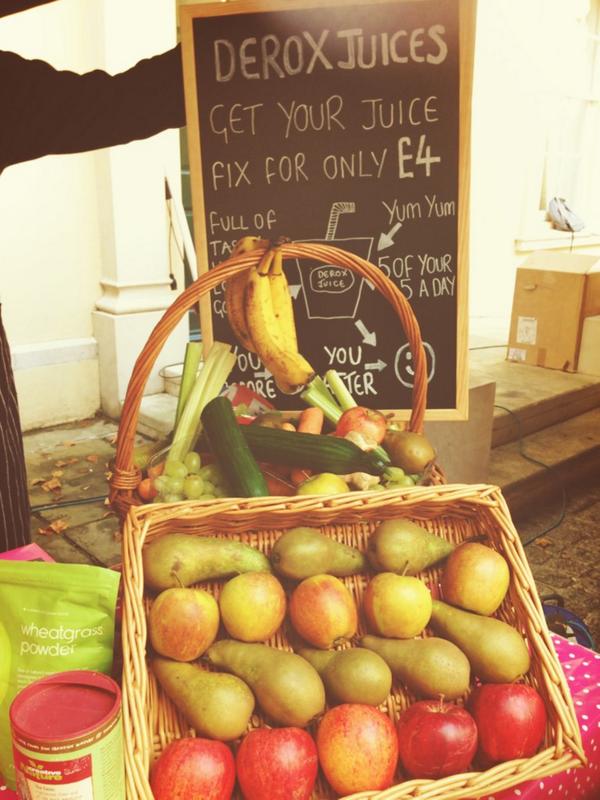 DEROX JUICES
GET YOUR JUICE
FIX FOR ONLY £4
FULL OF
Yum Yum
5 OF YOUR
5 A DAY
DEROX
JUICE
YOU
YOU
wheatgrass
powder
creative
nature